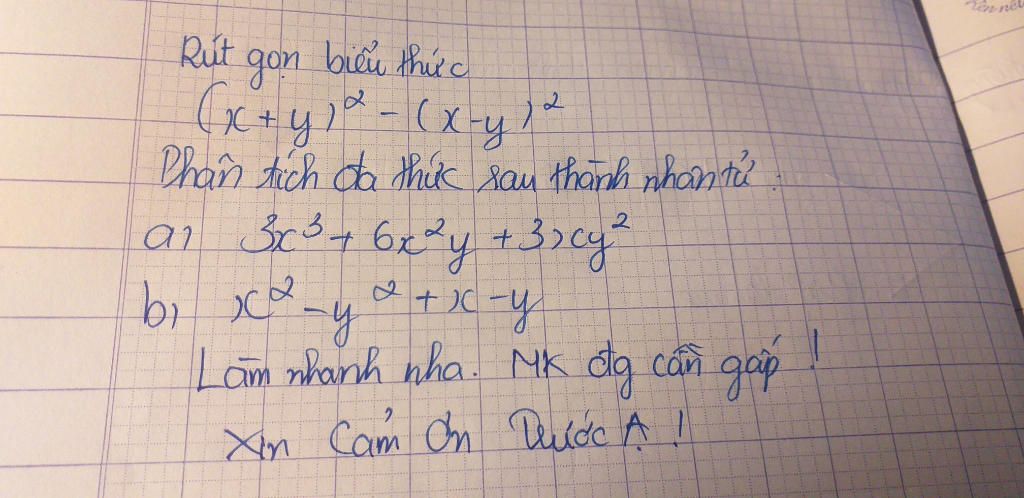 Rút gọn biểu thức
(x+y)² - (x-y)²
Phân tích đa thức sau thành nhân tử:
a) 3x³ + 6x²y + 3xy²
b) x² - y² + x - y
Làm nhanh nha. MK đg cần gấp!
Xin Cảm Ơn Trước Ạ!